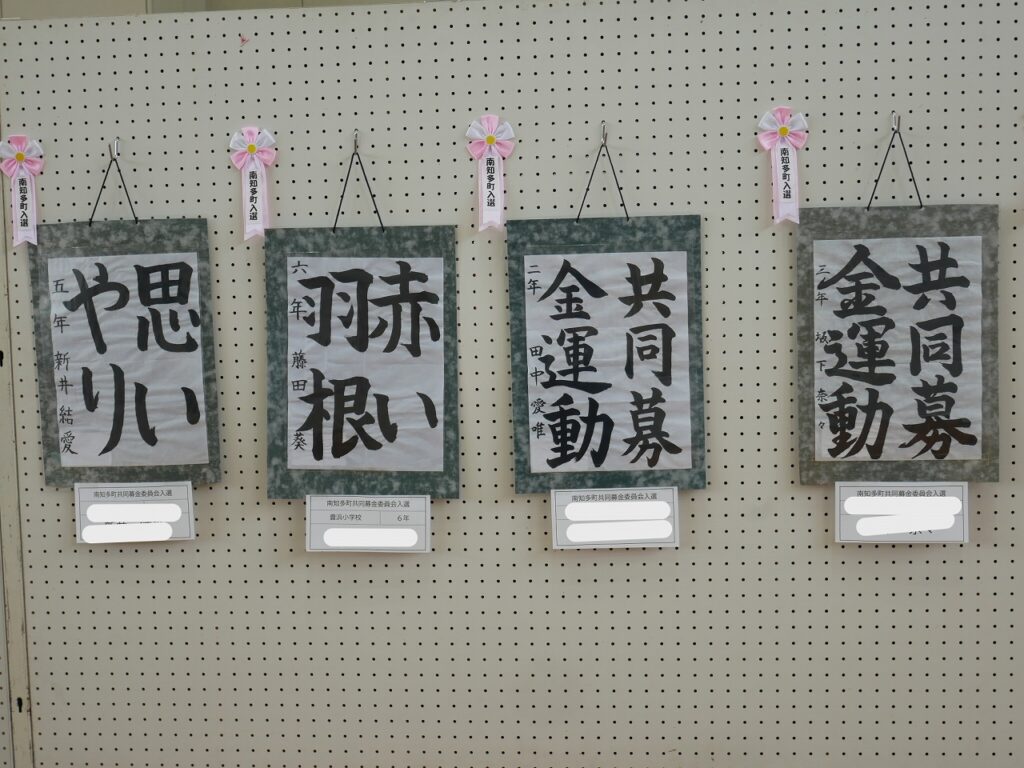 南知多町入選
思い
やり
五年 新井結愛
南知多町共同募金委員会入選
南知多町入選
赤い
羽根
六年 藤田葵
南知多町共同募金委員会入選
豊浜小学校 6年
南知多町入選
共同募
金運動
二年 田中愛唯
南知多町共同募金委員会入選
南知多町入選
共同募
金運動
三年 坂下奈々
南知多町共同募金委員会入選